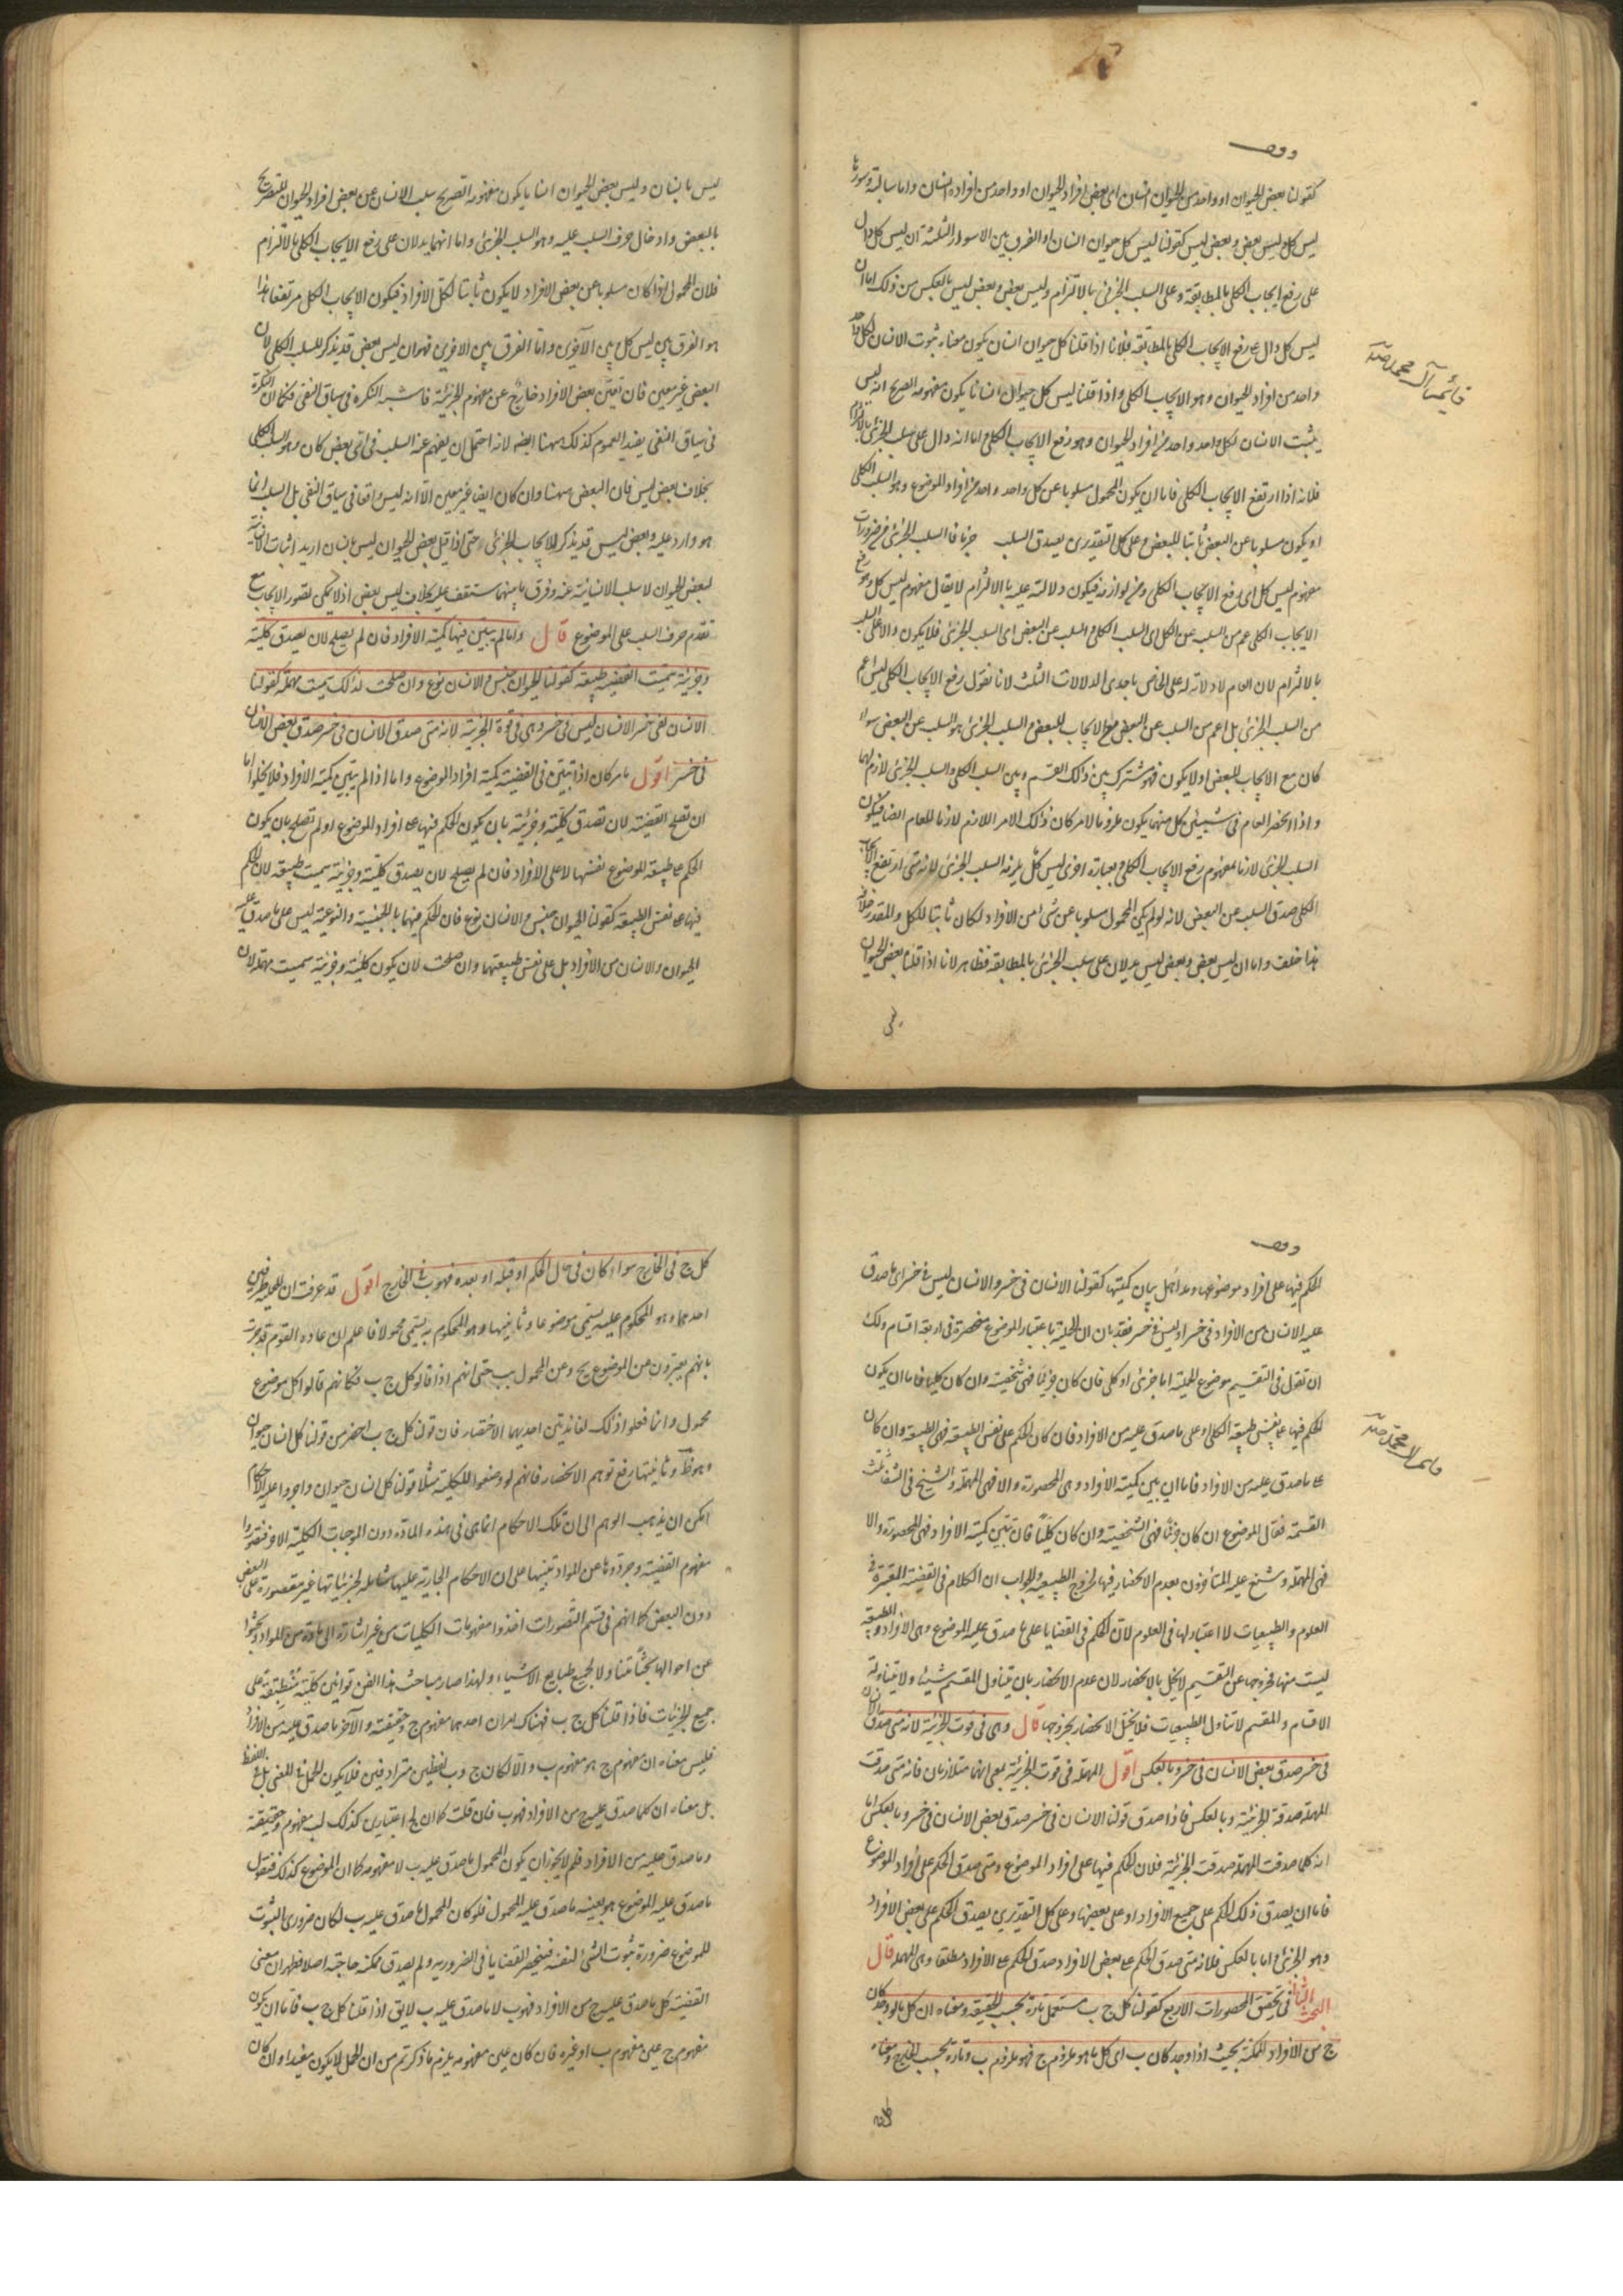 وقف
كقولنا بعض الحيوان او واحد من الحيوان انسان اى بعض افراد الحيوان او واحد من افراده انسان واما سالبة وسورها
ليس كل وليس بعض وبعض ليس كقولنا ليس كل حيوان انسان او الفرق بين الاسوار الثلثة ان ليس كل دال
على رفع ايجاب الكلى بالمطابقة وعلى السلب الجزئى بالالتزام وليس بعض وبعض ليس بالعكس من ذلك اما ان
ليس كل دال على رفع الايجاب الكلى بالمطابقة فلانا اذا قلنا كل حيوان انسان يكون معناه ثبوت الانسان لكل واحد
واحد من افراد الحيوان وهو الايجاب الكلى واذا قلنا ليس كل حيوان انسانا يكون مفهومه الصريح انه ليس
يثبت الانسان لكل واحد واحد من افراد الحيوان وهو رفع الايجاب الكلى واما انه دال على سلب الجزئى بالالتزام
فلانه اذا ارتفع الايجاب الكلى فاما ان يكون المحمول مسلوبا عن كل واحد واحد من افراد الموضوع وهو السلب الكلى
او يكون مسلوبا عن البعض ثابتا للبعض وعلى كل التقديرين يصدق السلب جزئا فالسلب الجزئى من ضروريات
مفهوم ليس كل اى رفع الايجاب الكلى ومن لوازمه فيكون دلالته عليه بالالتزام لا يقال مفهوم ليس كل وهو رفع
الايجاب الكلى عم من السلب عن الكل اى السلب الكلى والسلب عن البعض اى السلب الجزئى فلا يكون دالا على السلب
بالالتزام لان العام لا دلالة له على الخاص باحدى الدلالات الثلث لانا نقول رفع الايجاب الكلى ليس اعم
من السلب الجزئى بل اعم من السلب عن البعض مع الايجاب للبعض والسلب الجزئى هو السلب عن البعض سواء
كان مع الايجاب للبعض او لا يكون فهو مشترك بين ذلك القسم وبين السلب الكلى والسلب الجزئى لازم لهما
واذا انحصر العام فى شيئين كل منهما يكون ملزوما لامر كان ذلك الامر اللازم لازما للعام ايضا فيكون
السلب الجزئى لازما لمفهوم رفع الايجاب الكلى وبعبارة اخرى ليس كل يلزمه السلب الجزئى لانه متى ارتفع الايجاب
الكلى صدق السلب عن البعض لانه لو لم يكن المحمول مسلوبا عن شئ من الافراد لكان ثابتا للكل والمقدر خلافه
هذا خلف واما ان ليس بعض وبعض ليس يدلان على سلب الجزئى بالمطابقة فظاهر لانا اذا قلنا بعض الحيوان
ليس بانسان وليس بعض الحيوان انسانا يكون مفهومه الصريح سلب الانسان عن بعض افراد الحيوان للتصريح
بالبعض وادخال حرف السلب عليه وهو السلب الجزئى واما انهما يدلان على رفع الايجاب الكلى بالالتزام
فلان المحمول اذا كان مسلوبا عن بعض الافراد لا يكون ثابتا لكل الافراد فيكون الايجاب الكلى مرتفعا هذا
هو الفرق بين ليس كل بين الآخرين واما الفرق بين الاخرين فهو ان ليس بعض قد يذكر للسلب الكلى لان
البعض غير معين فان تعين بعض الافراد خارج عن مفهوم الجزئية فاشبه النكرة فى سياق النفى فكما ان النكرة
فى سياق النفى يفيد العموم كذلك ههنا ايضه لانه احتمل ان يفهم عنه السلب فى اى بعض كان وهو السلب الكلى
بخلاف بعض ليس فان البعض ههنا وان كان ايضا غير معين الا انه ليس واقعا فى سياق النفى بل السلب انما
هو وارد عليه وبعض ليس قد يذكر للايجاب الجزئى حتى اذا قيل بعض الحيوان ليس بانسان اريد اثبات الانسانية
لبعض الحيوان لا سلب الانسانية عنه وفرق ما بينهما ستقف عليه بخلاف ليس بعض اذ لا يمكن تصور الايجاب مع
تقدم حرف السلب على الموضوع قال واما لم يبين فيها كمية الافراد فان لم يصلح لان يصدق كلية
وجزئية سميت القضية طبيعة كقولنا الحيوان جنس والانسان نوع وان صلحت لذلك سميت مهملة كقولنا
الانسان لفى خسر الانسان ليس فى خسر وهى فى قوة الجزئية لانه متى صدق الانسان فى خسر صدق بعض الانسان
فى خسر اقول ما مر كان اذا تبين فى القضية كمية افراد الموضوع واما اذا لم يتبين كمية الافراد فلا يخلوا اما
ان تصلح القضية لان تصدق كلية وجزئية بان يكون الحكم فيها على افراد الموضوع او لم تصلح بان يكون
الحكم على طبيعة الموضوع نفسها لا على الافراد فان لم يصلح لان يصدق كلية وجزئية سميت طبيعة لان الحكم
فيها على نفس الطبيعة كقولنا الحيوان جنس والانسان نوع فان الحكم فيهما بالجنسية والنوعية ليس على ما صدق عليه
الحيوان والانسان من الافراد بل على نفس طبيعتهما وان صلحت لان يكون كلية وجزئية سميت مهملة لان
وقف
الحكم فيها على افراد موضوعها وقد اهمل بيان كميتها كقولنا الانسان فى خسر والانسان ليس فى خسر اى ما صدق
عليه الانسان من الافراد فى خسر او ليس فى خسر فقد بان ان الحملية باعتبار الموضوع منحصرة فى اربعة اقسام ولك
ان تقول فى التقسيم موضوع الحملية اما جزئى او كلى فان كان جزئيا فهى شخصية وان كان كليا فاما ان يكون
الحكم فيها على نفس طبيعة الكلى او على ما صدق عليه من الافراد فان كان الحكم على نفس الطبيعة فهى الطبيعية وان كان
على ما صدق عليه من الافراد فاما ان يبين كمية الافراد وهى المحصورة والا فهى المهملة والشيخ فى الشفا ثلث
القسمة فقال الموضوع ان كان جزئيا فهى الشخصية وان كان كليا فان تبين كمية الافراد فهى المحصورة والا
فهى المهملة وشنع عليه المتأخرون بعدم الانحصار فيها لخروج الطبيعية والجواب ان الكلام فى القضية المعتبرة فى
العلوم والطبيعيات لا اعتبار لها فى العلوم لان الحكم فى القضايا على ما صدق عليه الموضوع وهى الافراد والطبيعة
ليست منها فخروجها عن التقسيم لا يخل بالانحصار لان عدم الانحصار بان يتناول المقسم شيئا ولا يتناوله
الاقسام والمقسم لا يتناول الطبيعيات فلا يختل الانحصار بخروجها قال وهى فى قوت الجزئية لانه متى صدق الانسان
فى خسر صدق بعض الانسان فى خسر وبالعكس اقول المهملة فى قوت الجزئية بمعنى انهما متلازمان فانه متى صدقت
المهملة صدقة الجزئية وبالعكس فاذا صدق قولنا الانسان فى خسر صدق بعض الانسان فى خسر وبالعكس اما
انه كلما صدقت المهملة صدقت الجزئية فلان الحكم فيها على افراد الموضوع ومتى صدق الحكم على افراد الموضوع
فاما ان يصدق ذلك الحكم على جميع الافراد او على بعضها وعلى كل التقديرين يصدق الحكم على بعض الافراد
وهو الجزئى واما بالعكس فلانه متى صدق الحكم على بعض الافراد صدق الحكم على الافراد مطلقا وهى المهملة قال
البحث الثانى فى تحقيق المحصورات الاربع كقولنا كل ج ب مستعمل تارة بحسب الحقيقة ومعناه ان كل ما لو وجد كان
ج من الافراد الممكنة بحيث اذا وجد كان ب اى كل ما هو ملزوم ج فهو ملزوم ب وتارة بحسب الخارج ومعناه
كل ج فى الخارج سواء كان فى حال الحكم او قبله او بعده فهو ب فى الخارج اقول قد عرفت ان للحملية طرفين
احدهما وهو المحكوم عليه يسمى موضوعا وثانيهما وهو المحكوم به يسمى محمولا فاعلم ان عادة القوم قد جرت
بانهم يعبرون عن الموضوع بج وعن المحمول بب حتى انهم اذا قالو كل ج ب فكانهم قالوا كل موضوع
محمول وانما فعلوا ذلك لفائدتين احديهما الاختصار فان قولنا كل ج ب اخصر من قولنا كل انسان حيوان
وهو ظ وثانيتها رفع توهم الانحصار فانهم لو وضعوا للكلية مثلا قولنا كل انسان حيوان واجروا عليه الاحكام
امكن ان يذهب الوهم الى ان تلك الاحكام انما هى فى هذه المادة دون الموجبات الكلية الاخر فتصوروا
مفهوم القضية وجردوها عن المواد تنبيها على ان الاحكام الجارية عليها شاملة لجزئياتها غير مقصورة على البعض
دون البعض كما انهم فى قسم التصورات اخذوا مفهومات الكليات من غير اشارة الى مادة من المواد وبحثوا
عن احوالها بحثا متناولا لجميع طبايع الاشياء ولهذا صار مباحث هذا الفن قوانين كلية منطبقة على
جميع الجزئيات فاذا قلنا كل ج ب فهناك امران احدهما مفهوم ج وحقيقته والآخر ما صدق عليه من الافراد
فليس معناه ان مفهوم ج هو مفهوم ب والا لكان ج وب لفظين مترادفين فلا يكون الحمل فى المعنى بل فى اللفظ
بل معناه ان كلما صدق عليه ج من الافراد فهو ب فان قلت كما ان لج اعتبارين كذلك لب مفهوم وحقيقة
وما صدق عليه من الافراد فلم لا يجوز ان يكون المحمول ما صدق عليه ب لا مفهومه كما ان الموضوع كذلك فنقول
ما صدق عليه الموضوع هو بعينه ما صدق عليه المحمول فلو كان المحمول ما صدق عليه ب لكان ضرورى الثبوت
للموضوع ضرورة ثبوت الشئ لنفسه فينحصر القضايا فى الضرورية ولم يصدق ممكنة خاصة اصلا فظهر ان معنى
القضية كل ما صدق عليه ج من الافراد فهو ب لا ما صدق عليه ب لا يق اذا قلنا كل ج ب فاما ان يكون
مفهوم ج عين مفهوم ب او غيره فان كان عين مفهومه يلزم ما ذكرتم من ان الحمل لا يكون مفيدا وان كان